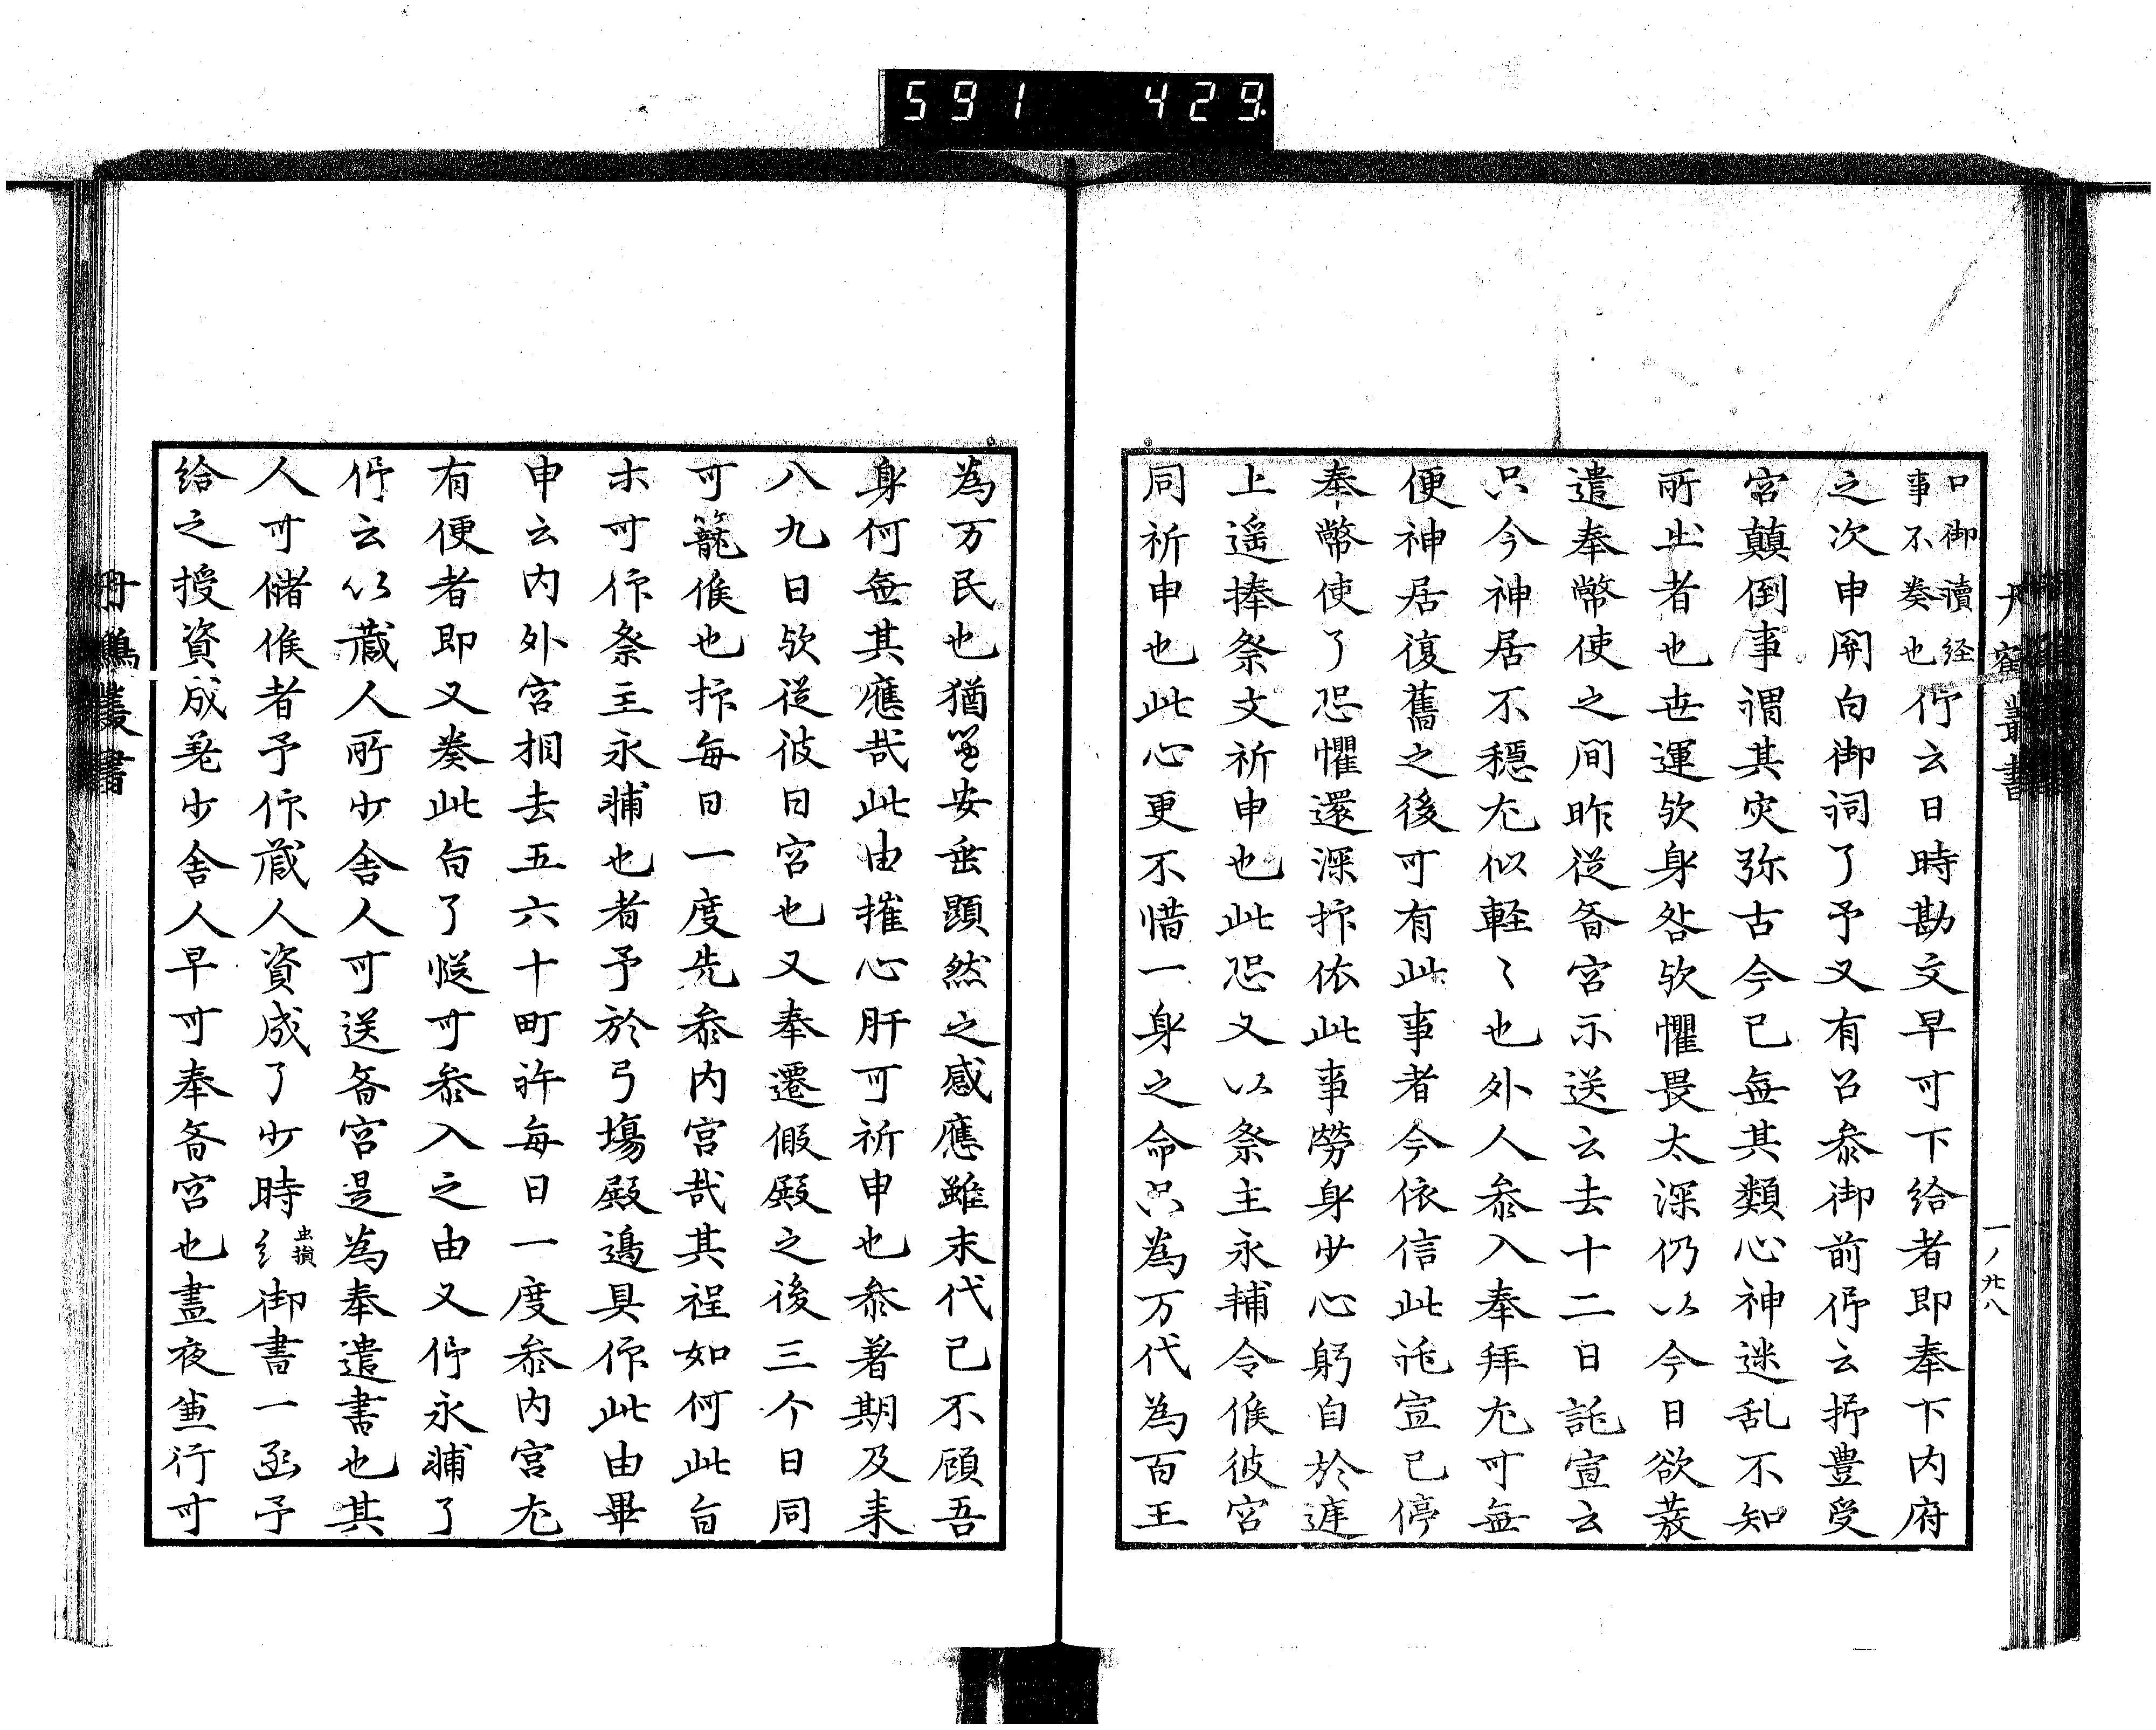 591 429
丹鶴叢書
一ノ廿八
口御讀経
事不奏也仰云日時勘文早可下給者即奉下内府
之次申関白御祠了予又有召参御前仰云抑豊受
宮顛倒事謂其灾弥古今已無其類心神迷乱不知
所出者也世運欤身咎欤懼畏太深仍以今日欲發
遣奉幣使之間昨従斎宮示送云去十二日託宣云
只今神居不穏尤似軽々也外人参入奉拜尤可無
便神居復舊之後可有此事者今依信此託宣已停
奉幣使了恐懼還深抑依此事勞身少心躬自於遅
上遥捧祭文祈申也此恐又以祭主永輔令候彼宮
同祈申也此心更不惜一身之命只為万代為百王
為万民也猶宜安垂顕然之感應雖末代已不顧吾
身何無其應哉此由摧心肝可祈申也参著期及来
八九日欤従彼日宮也又奉遷假殿之後三个日同
可籠候也抑毎日一度先参内宮哉其程如何此旨
木可仰祭主永輔也者予於弓場殿邉具仰此由畢
申云内外宮相去五六十町許毎日一度参内宮尤
有便者即又奏此旨了慥可参入之由又仰永輔了
仰云以蔵人所少舎人可送斎宮是為奉遣書也其
人可儲候者予仰蔵人資成了少時虫損御書一函予
給之授資成差少舎人早可奉斎宮也晝夜兼行可
丹鶴叢書